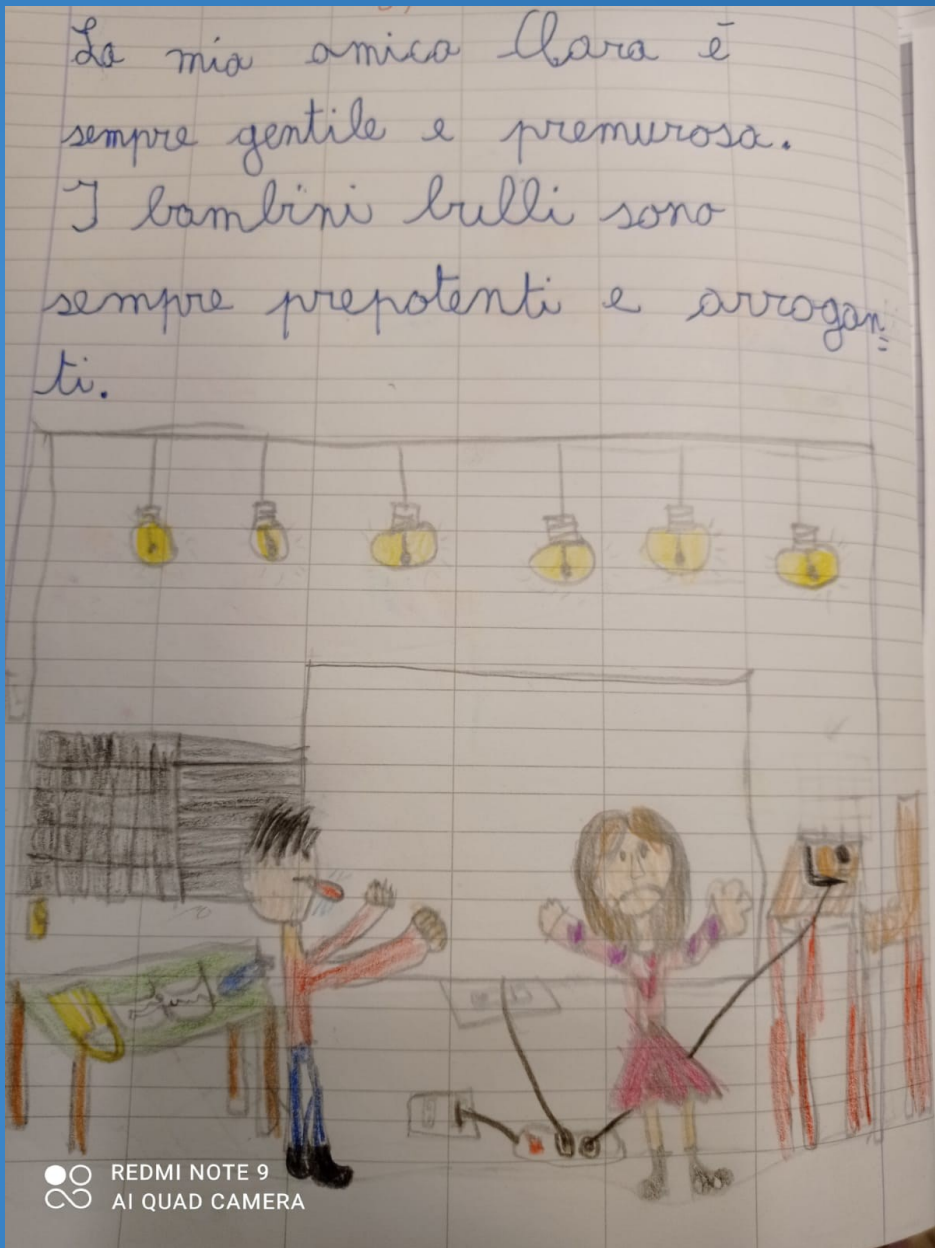 La mia amica Clara è
sempre gentile e premurosa.
I bambini bulli sono
sempre prepotenti e arrogan=
ti.
REDMI NOTE 9
AI QUAD CAMERA